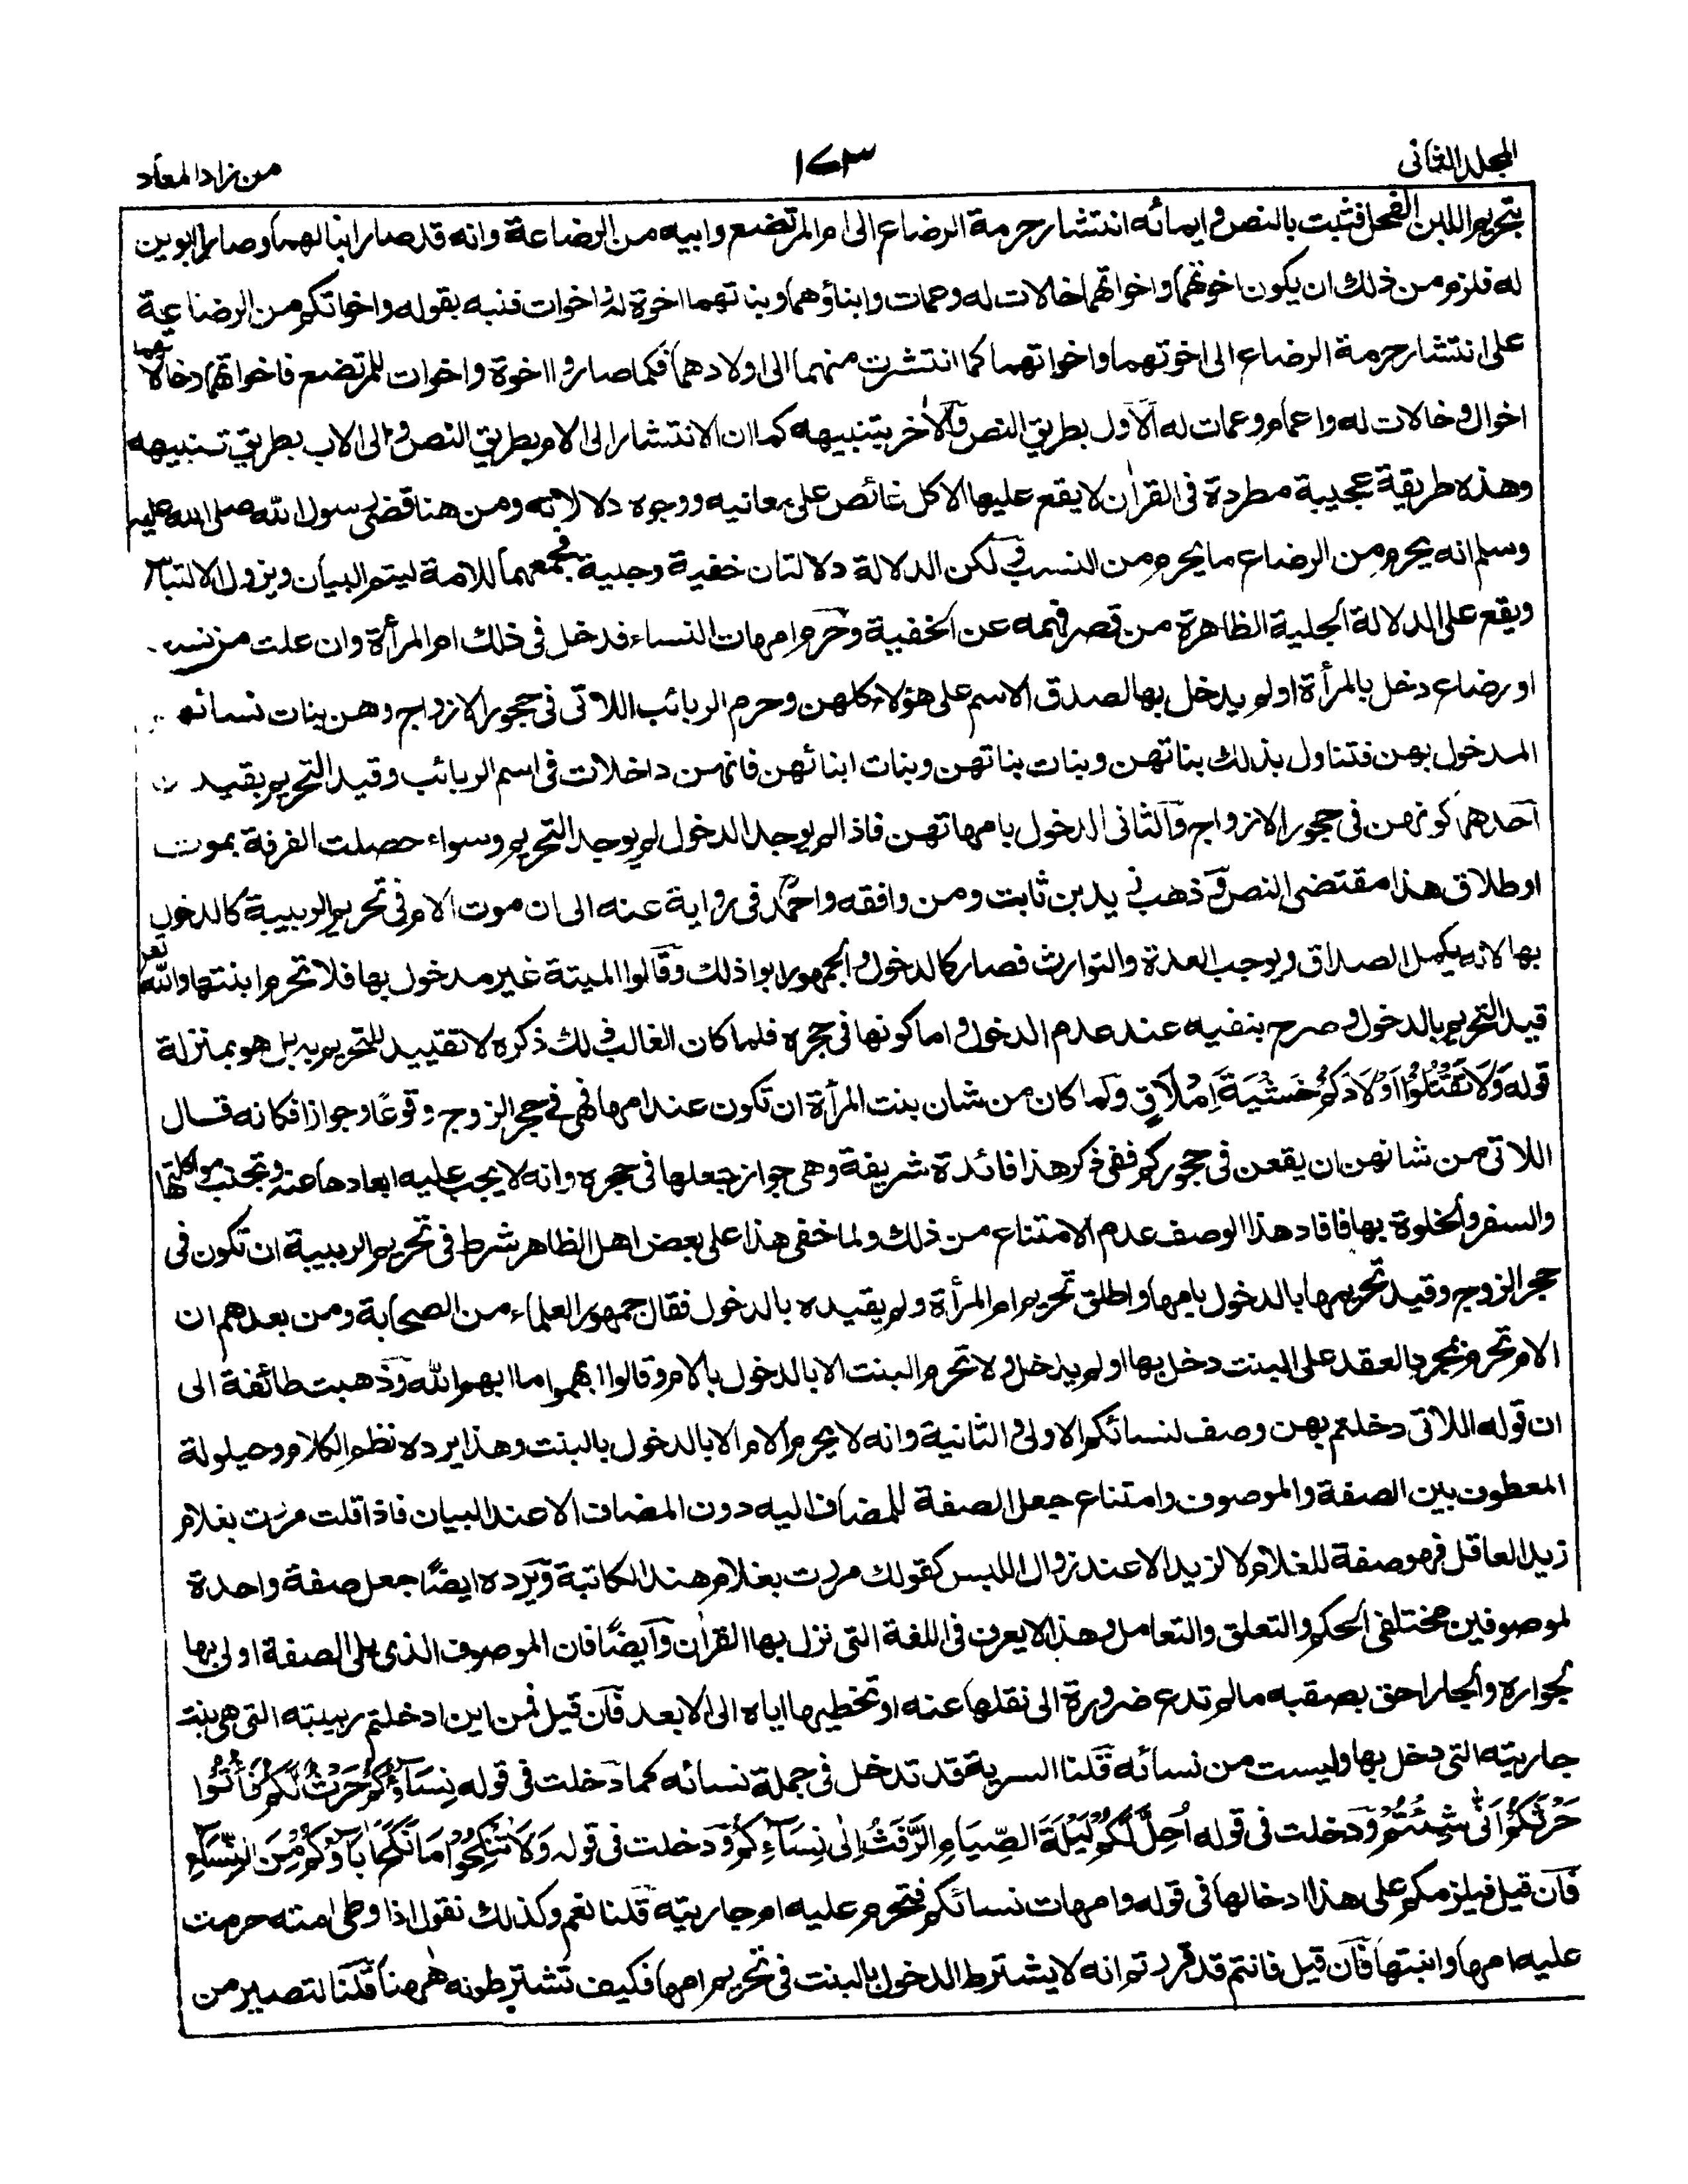 المجلد الثانى
١٧٣
من زاد المعاد
بتحريم اللبن الفحل فثبت بالنص و ايمائه انتشار حرمة الرضاع الى ام المرتضع وابيه من الرضاعة وانه قد صار ابنا لهما وصارا ابوين
له فلزم من ذلك ان يكون اخوتهما واخواتهما خالات له وعمات وابناؤهما وبناتهما اخوة له واخوات فنبه بقوله واخواتكم من الرضاعة
على انتشار حرمة الرضاع الى اخوتهما واخواتهما كما انتشرت منهما الى اولادهما فكما صاروا اخوة واخوات للمرتضع فاخواتهما وخالاتهما
اخوال وخالات له واعمام وعمات له الاول بطريق النص والاخر بتنبيهه كما ان الانتشار الى الام بطريق النص والى الاب بطريق تنبيهه
وهذه طريقة عجيبة مطردة فى القران لا يقع عليها الا كل غائص على معانيه ووجوه دلالاته ومن هنا قضى رسول الله صلى الله عليه
وسلم انه يحرم من الرضاع ما يحرم من النسب ولكن الدلالة دلالتان خفية وجلية فجمعهما للامة ليتم البيان ويزول الالتباس
ويقع على الدلالة الجلية الظاهرة من قصر فهمه عن الخفية وحرم امهات النساء فدخل فى ذلك ام المرأة وان علت من نسب
او رضاع دخل بالمرأة او لم يدخل بها لصدق الاسم على هؤلاء كلهن وحرم الربائب اللاتى فى حجور الازواج وهن بنات نسائهم
المدخول بهن فتناول بذلك بناتهن وبنات بناتهن وبنات ابنائهن فانهن داخلات فى اسم الربائب وقيد التحريم بقيدين
احدهما كونهن فى حجور الازواج والثانى الدخول بامهاتهن فاذا لم يوجد الدخول لم يوجد التحريم وسواء حصلت الفرقة بموت
او طلاق هذا مقتضى النص وذهب زيد بن ثابت ومن وافقه واحمد فى رواية عنه الى ان موت الام فى تحريم الربيبة كالدخول
بها لانه يكمل الصداق ويوجب العدة والتوارث فصار كالدخول والجمهور ابوا ذلك وقالوا الميتة غير مدخول بها فلا تحرم ابنتها والله تعالى
قيد التحريم بالدخول وصرح بنفيه عند عدم الدخول واما كونها فى حجره فلما كان الغالب ذلك ذكره لا تقييد للتحريم به بل هو بمنزلة
قوله وَلَا تَقْتُلُوْا اَوْلَادَكُمْ خَشْيَةَ اِمْلَاقٍ ولما كان من شان بنت المرأة ان تكون عند امها فهى فى حجر الزوج وقوعًا وجوازا فكانه قال
اللاتى من شانهن ان يقعن فى حجوركم ففى ذكر هذا فائدة شريفة وهى جواز جعلها فى حجره وانه لا يجب عليه ابعادها عنه وتجنب مواكلتها
والسفر والخلوة بها فافاد هذا الوصف عدم الامتناع من ذلك ولما خفى هذا على بعض اهل الظاهر شرط فى تحريم الربيبة ان تكون فى
حجر الزوج وقيد تحريمها بالدخول بامها واطلق تحريم ام المرأة ولم يقيده بالدخول فقال جمهور العلماء من الصحابة ومن بعدهم ان
الام تحرم بمجرد العقد على البنت دخل بها او لم يدخل ولا تحرم البنت الا بالدخول بالام وقالوا ابهموا ما ابهم الله وذهبت طائفة الى
ان قوله اللاتى دخلتم بهن وصف لنسائكم الاولى والثانية وانه لا يحرم الام الا بالدخول بالبنت وهذا يرده نظم الكلام وحيلولة
المعطوف بين الصفة والموصوف وامتناع جعل الصفة للمضاف اليه دون المضاف الا عند البيان فاذا قلت مررت بغلام
زيد العاقل فهو صفة للغلام لا لزيد الا عند زوال اللبس كقولك مررت بغلام هند الكاتبة ويرده ايضًا جعل صفة واحدة
لموصوفين مختلفى الحكم والتعلق والتعامل وهذا لا يعرف فى اللغة التى نزل بها القران وايضًا فان الموصوف الذى يلى الصفة اولى بها
لجواره والجار احق بصقبه ما لم تدع ضرورة الى نقلها عنه او تخطيها اياه الى الابعد فان قيل فمن اين ادخلتم ربيبته التى هى بنت
جاريته التى دخل بها وليست من نسائه قلنا السرية قد تدخل فى جملة نسائه كما دخلت فى قوله نِسَآؤُكُمْ حَرْثٌ لَّكُمْ فَأْتُوْا
حَرْثَكُمْ اَنّٰى شِئْتُمْ ودخلت فى قوله اُحِلَّ لَكُمْ لَيْلَةَ الصِّيَامِ الرَّفَثُ اِلٰى نِسَآءِكُمْ ودخلت فى قوله وَلَا تَنْكِحُوْا مَا نَكَحَ اٰبَآؤُكُمْ مِنَ النِّسَآءِ
فان قيل فيلزمكم على هذا ادخالها فى قوله وامهات نسائكم فتحرم عليه ام جاريته قلنا نعم وكذلك نقول اذا وطى امته حرمت
عليه امها وابنتها فان قيل فانتم قد قررتم انه لا يشترط الدخول بالبنت فى تحريم امها فكيف تشترطونه ههنا قلنا لتصير من